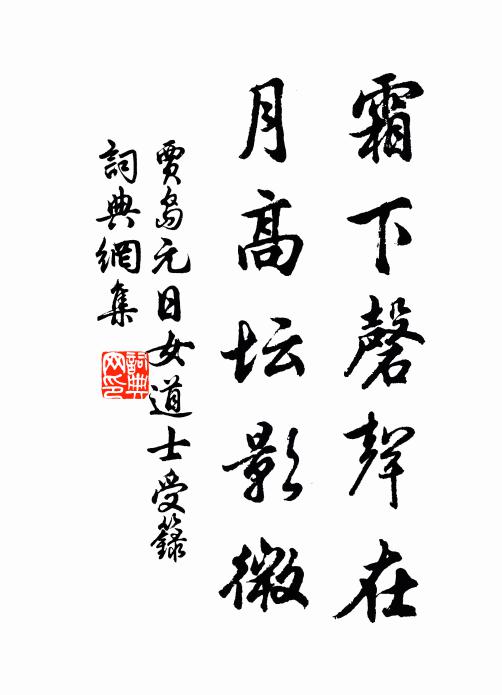 霜下磬聲在
月高坛影微
賈島元日女道士受籙
詞典網集
詞典網印